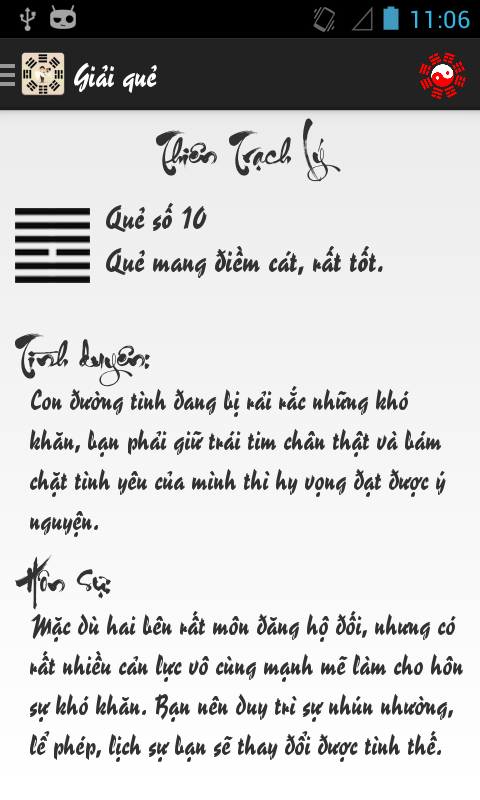 11:06
Giải quẻ
Thiên Trạch Lý
Quẻ số 10
Quẻ mang điềm cát, rất tốt.
Tình duyên:
Con đường tình đang bị rải rắc những khó
khăn, bạn phải giữ trái tim chân thật và bám
chặt tình yêu của mình thì hy vọng đạt được ý
nguyện.
Hôn sự:
Mặc dù hai bên rất môn đăng hộ đối, nhưng có
rất nhiều cản lực vô cùng mạnh mẽ làm cho hôn
sự khó khăn. Bạn nên duy trì sự nhún nhường,
lễ phép, lịch sự bạn sẽ thay đổi được tình thế.